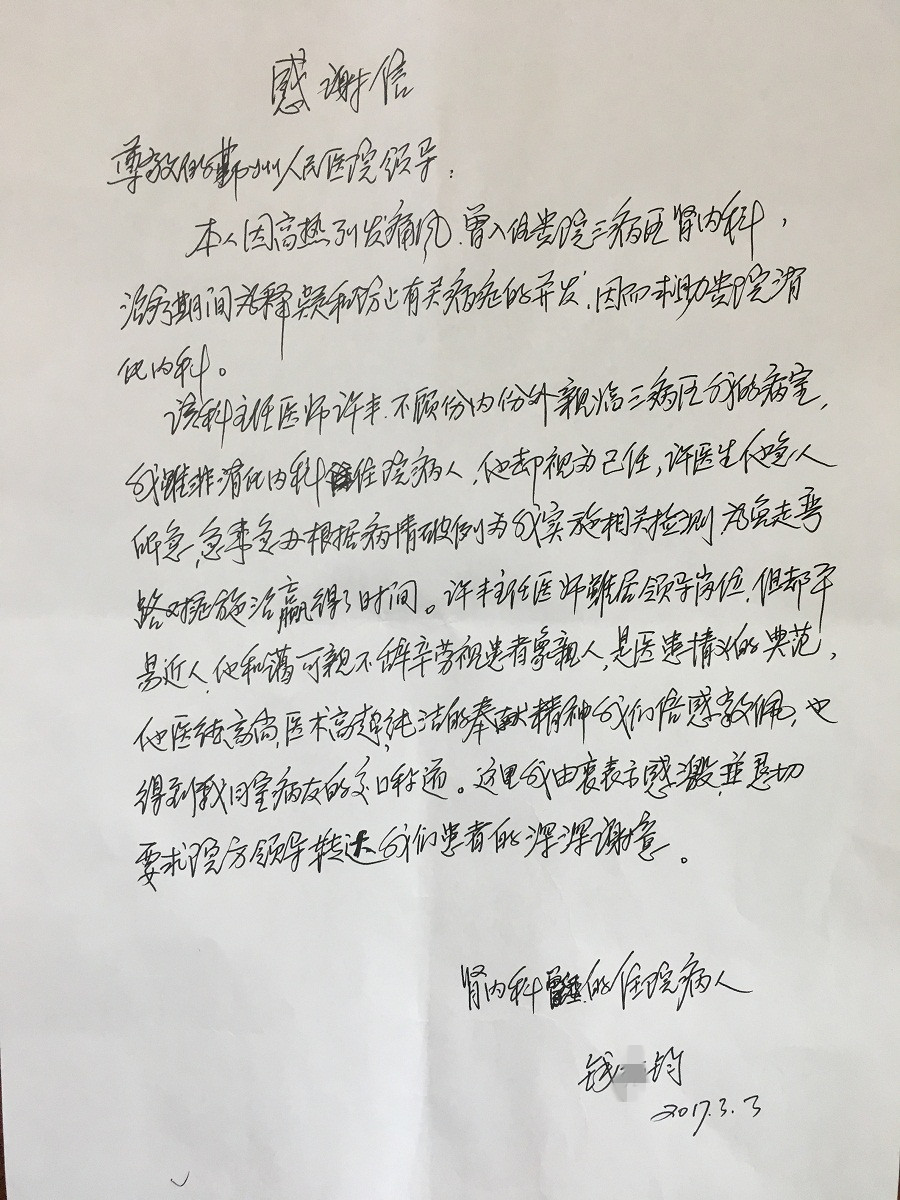 感谢信
尊敬的鄞州人民医院领导：
本人因高热引发痛风，曾入住贵院三病区肾内科，
治疗期间为释疑和防止有关病症的并发，因而求助贵院消
化内科。
该科主任医师许丰，不顾份内份外亲临三病区我的病室，
我虽非消化内科住院病人，他却视为己任，许医生他急人
所急，急事急办根据病情破例为我实施相关检测，为免走弯
路对症施治赢得了时间。许丰主任医师虽居领导岗位，但却平
易近人，他和蔼可亲不辞辛劳视患者象亲人，是医患情义的典范，
他医德高尚，医术高超，纯洁的奉献精神我们倍感敬佩，也
得到我同室病友的交口称道。这里我由衷表示感激，并恳切
要求院方领导转达我们患者的深深谢意。
肾内科的住院病人
钱 钧
2017.3.3